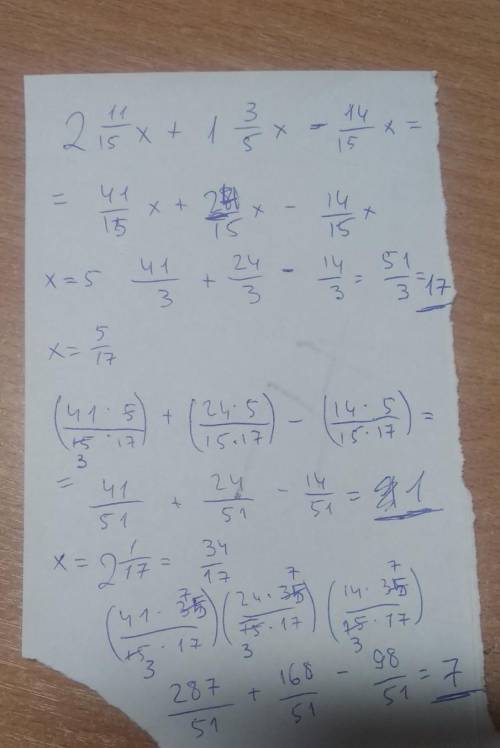 2 11/15 x + 1 3/5 x - 14/15 x =
= 41/15 x + 24/15 x - 14/15 x
x = 5 41/3 + 24/3 - 14/3 = 51/3 = 17
x = 5/17
(41 · 5 / 15 · 17) + (24 · 5 / 15 · 17) - (14 · 5 / 15 · 17) =
3
= 41/51 + 24/51 - 14/51 = 1
x = 2 1/17 = 34/17
7 7 7
(41 · 35 / 15 · 17) (24 · 35 / 15 · 17) (14 · 35 / 15 · 17)
3 3 3
287/51 + 168/51 - 98/51 = 7